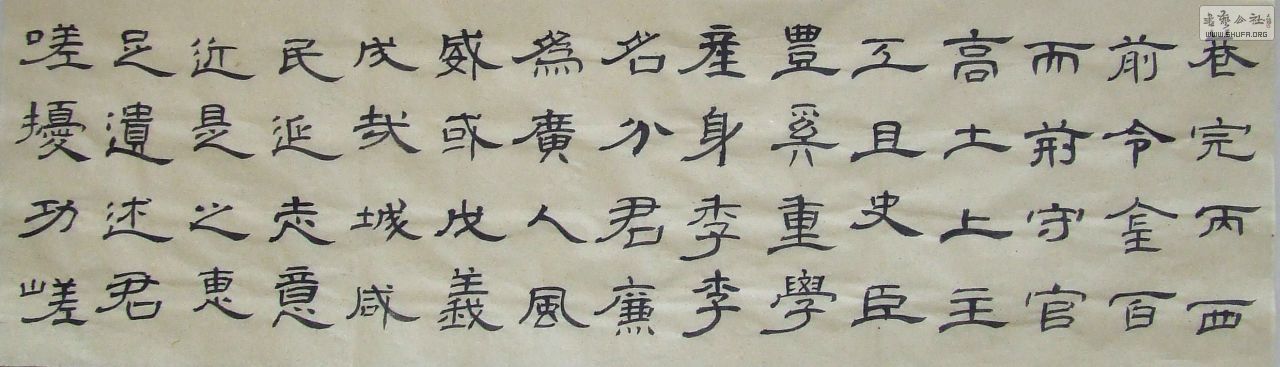 巷完丙西
前令百
而守官
高土上主
工且史臣
豊奚重學
產身李李
名分君廉
為廣人風
威或戊義
成哉城咸
民延志意
近是之惠
足遺述君
嗟擾功嵯
书艺公社
WWW.SHUFA.ORG